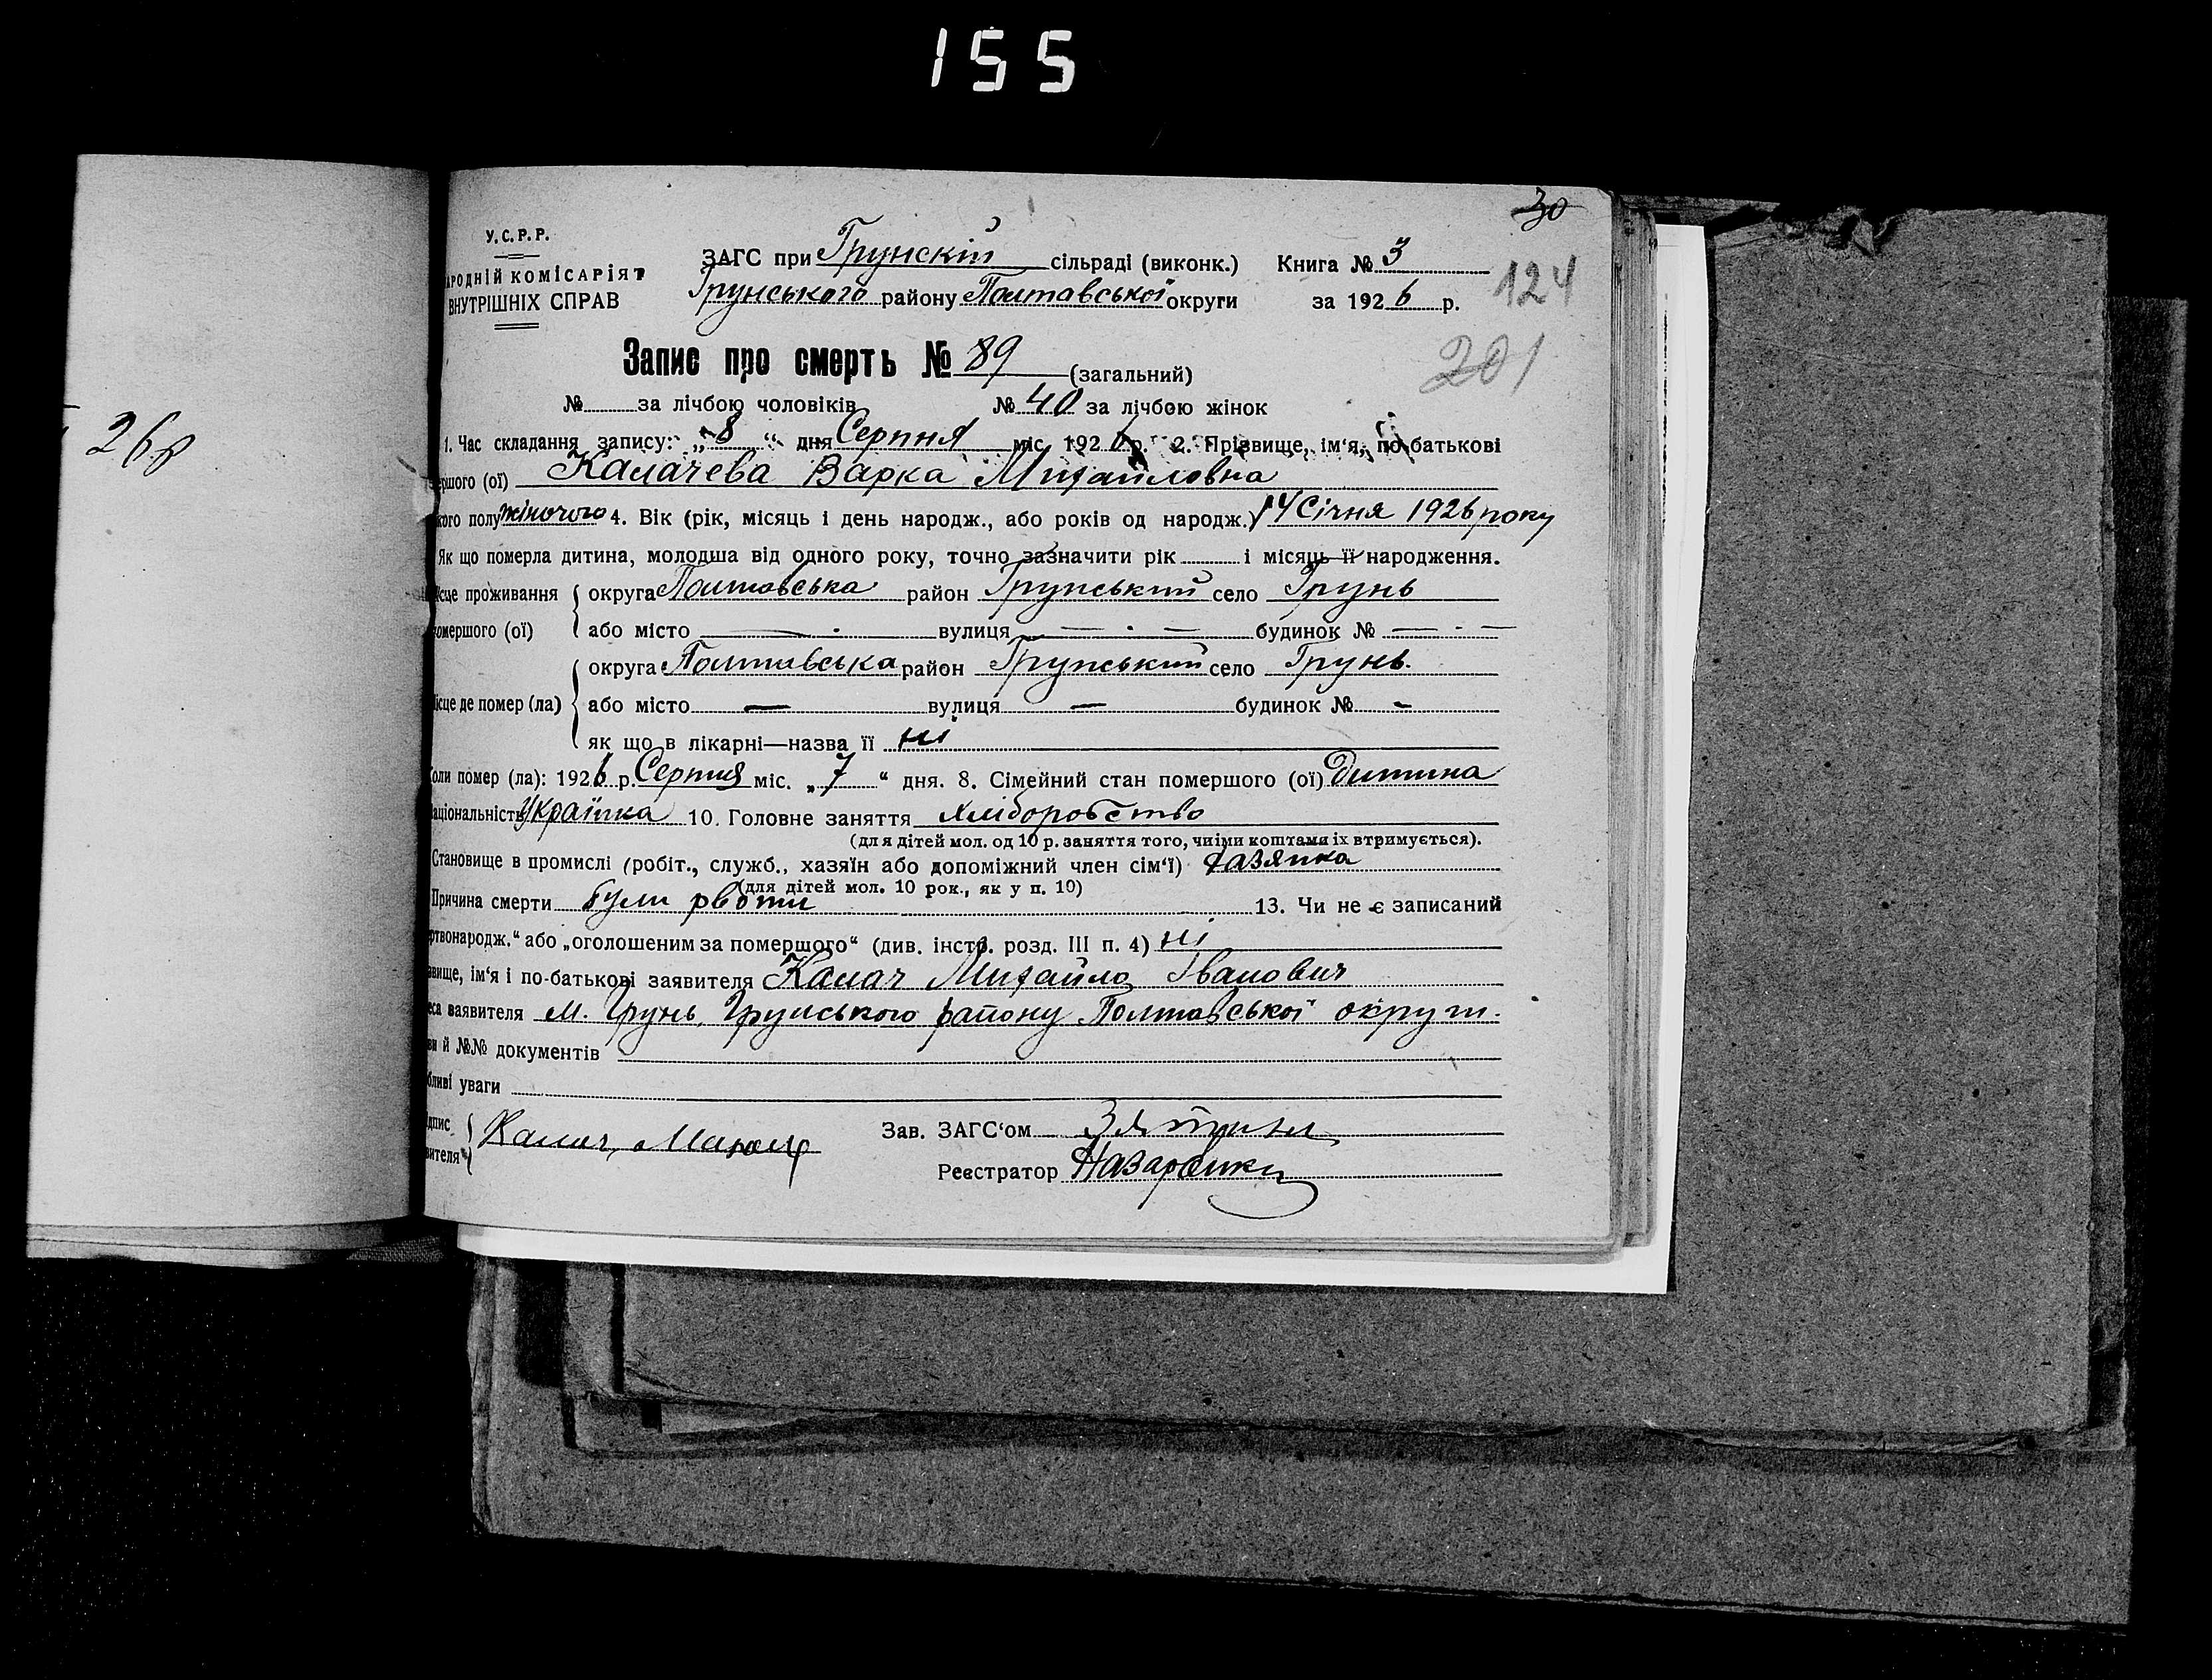 155
30
У.С.Р.Р.
АРОДНІЙ КОМІСАРІЯТ
ВНУТРІШНІХ СПРАВ
ЗАГС при Грунскій сільраді (виконк.) Книга № 3
Грунського району Полтавської округи за 1926 р.
124
Запис про смерть № 89 (загальний)
201
№ за лічбою чоловіків № 40 за лічбою жінок
26р
1. Час складання запису: „8“ дня Серпня міс. 1926 р. 2. Прізвище, ім'я, по-батькові
ершого (ої) Калачева Варка Михайловна
кого полу жіночого 4. Вік (рік, місяць і день народж., або років од народж.) 14 Січня 1926 року
Як що померла дитина, молодша від одного року, точно зазначити рік і місяць її народження.
ісце проживання округа Полтавська район Грунський село Грунь
омершого (ої) або місто — вулиця — будинок № —
округа Полтавська район Грунський село Грунь.
ісце де помер (ла) або місто — вулиця — будинок № —
як що в лікарні—назва її ні
оли помер (ла): 1926 р. Серпня міс. „7“ дня. 8. Сімейний стан помершого (ої) Дитина
аціональність Українка 10. Головне заняття хліборобство
(для дітей мол. од 10 р. заняття того, чиїми коштами їх втримується).
Становище в промислі (робіт., служб., хазяїн або допоміжний член сім'ї) хазяйка
(для дітей мол. 10 рок., як у п. 10)
Причина смерти були рвоти 13. Чи не є записаний
ртвонародж.“ або „оголошеним за помершого“ (див. інстр. розд. III п. 4) ні
звище, ім'я і по-батькові заявителя Калач Михайло Іванович
еса заявителя м. Грунь, Грунського району Полтавської округи.
ви й №№ документів
бливі уваги
дпис Калач
вителя
Зав. ЗАГС'ом
Реєстратор